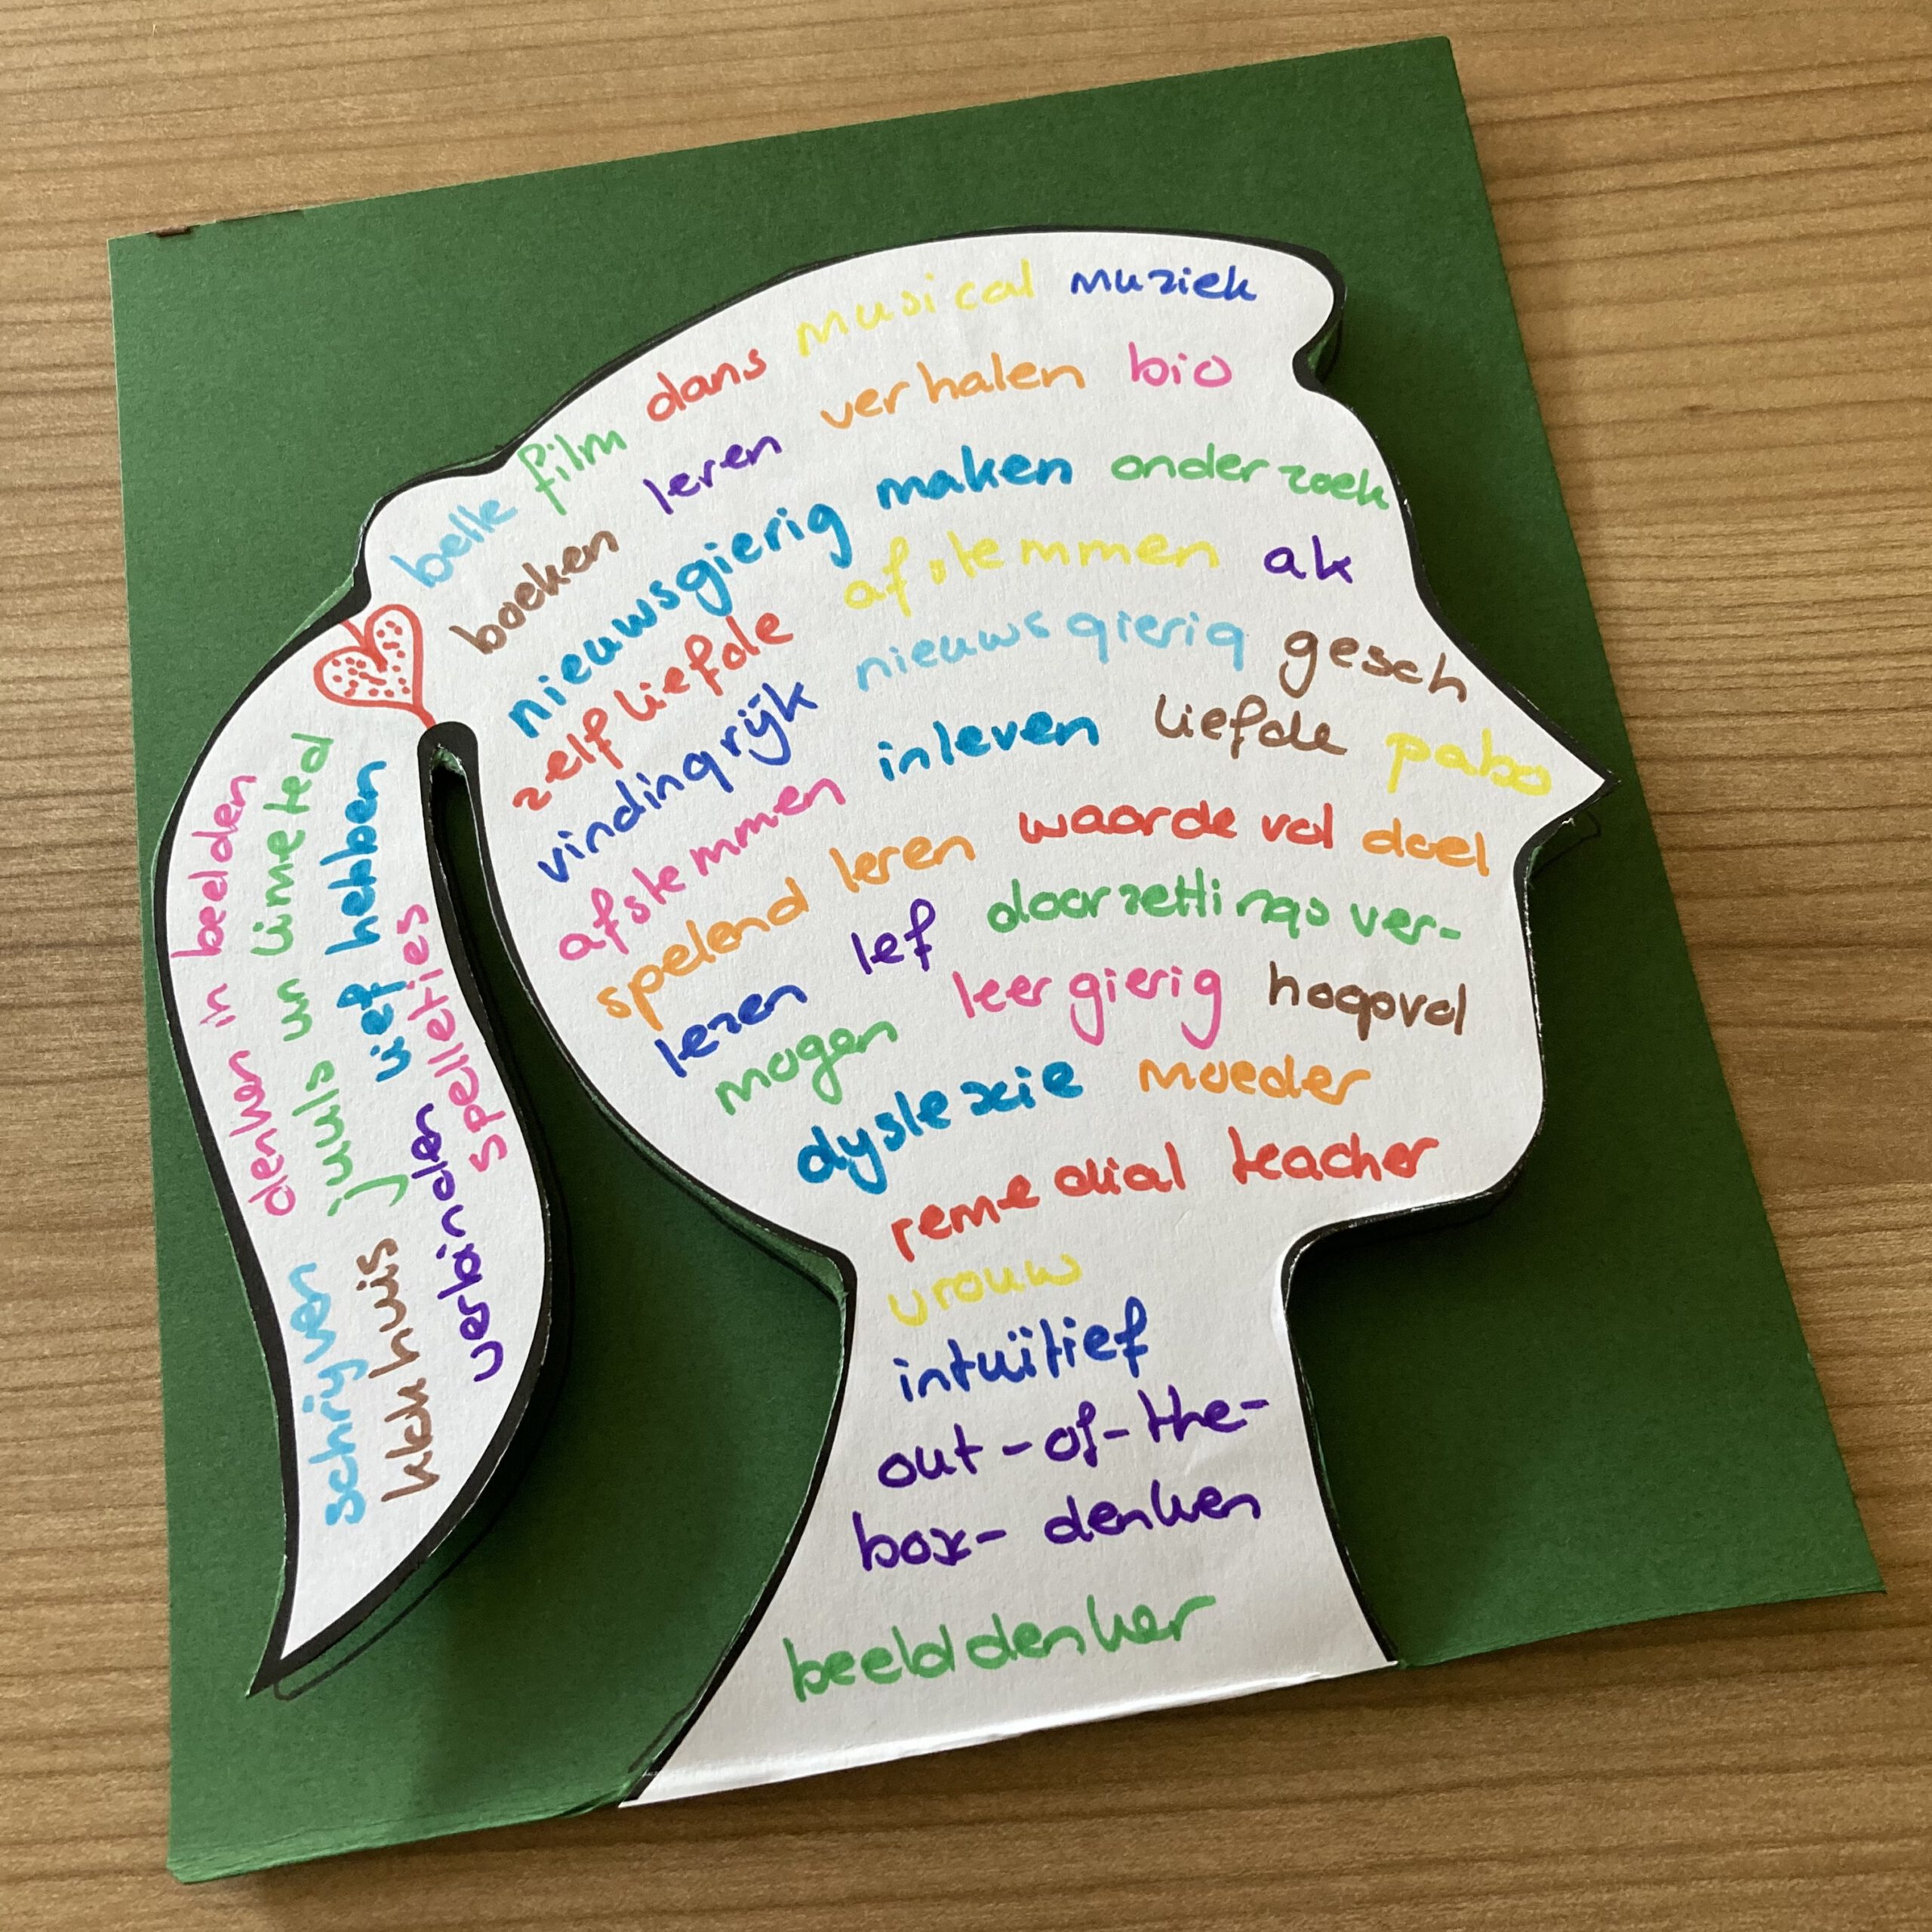 belle film dans musical muziek
boeken leren verhalen bio
nieuwsgierig maken onderzoek
zelfliefde afstemmen ak
vindingrijk nieuwsgierig gesch
afstemmen inleven liefde pabo
spelend leren waardevol doel
lezen lef doorzettingsver-
mogen leergierig hoopvol
dyslexie moeder
remedial teacher
vrouw
intuïtief
out-of-the-
box-denken
beelddenker
denker in beelden
juuls un limeted
lief hebben
spelletjes
schrijven
huis
verbinder